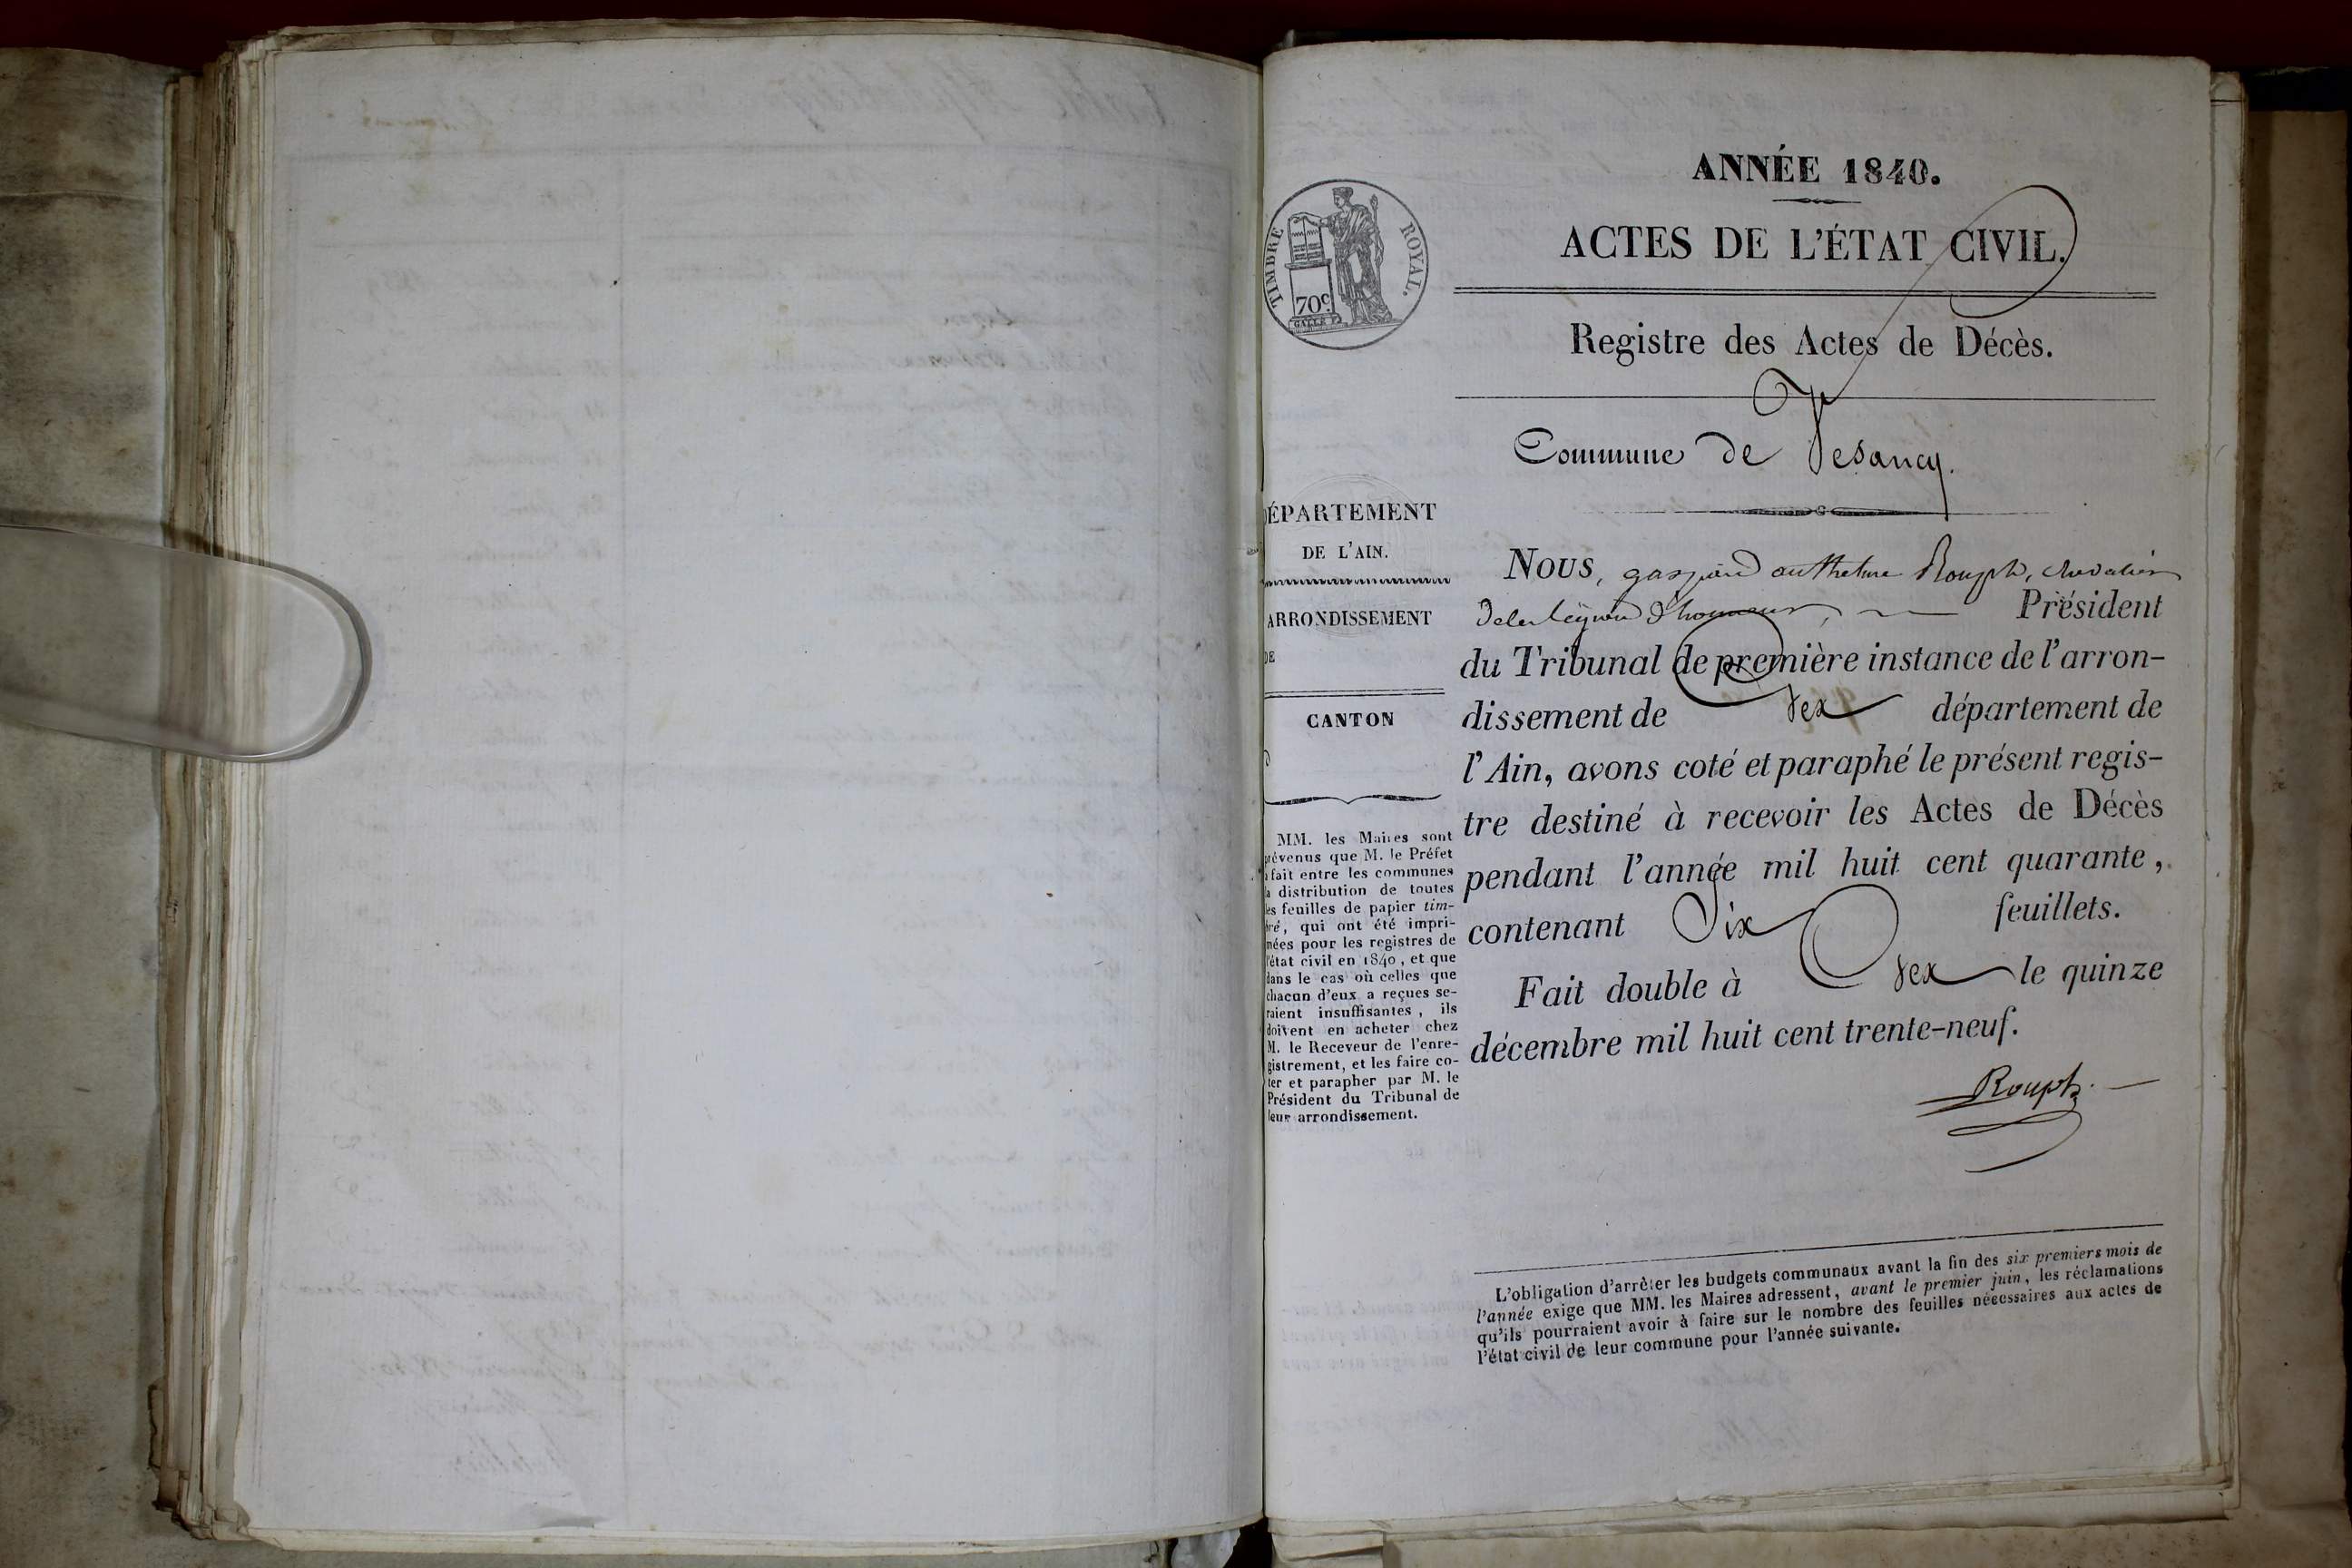 ANNÉE 1840.
ACTES DE L'ÉTAT CIVIL.
Registre des Actes de Décès.
Commune de Vesancy.
TIMBRE ROYAL.
70c.
GALLE F.
DÉPARTEMENT
DE L'AIN.
ARRONDISSEMENT
DE
CANTON
MM. les Maires sont
prévenus que M. le Préfet
a fait entre les communes
la distribution de toutes
les feuilles de papier tim-
bré, qui ont été impri-
mées pour les registres de
l'état civil en 1840, et que
dans le cas où celles que
chacun d'eux a reçues se-
raient insuffisantes, ils
doivent en acheter chez
M. le Receveur de l'enre-
gistrement, et les faire co-
ter et parapher par M. le
Président du Tribunal de
leur arrondissement.
Nous, gaspard anthelme Rouph, chevalier
de la Légion d'honneur, Président
du Tribunal de première instance de l'arron-
dissement de Gex département de
l'Ain, avons coté et paraphé le présent regis-
tre destiné à recevoir les Actes de Décès
pendant l'année mil huit cent quarante,
contenant Six feuillets.
Fait double à Gex le quinze
décembre mil huit cent trente-neuf.
Rouph.
L'obligation d'arrêter les budgets communaux avant la fin des six premiers mois de
l'année exige que MM. les Maires adressent, avant le premier juin, les réclamations
qu'ils pourraient avoir à faire sur le nombre des feuilles nécessaires aux actes de
l'état civil de leur commune pour l'année suivante.